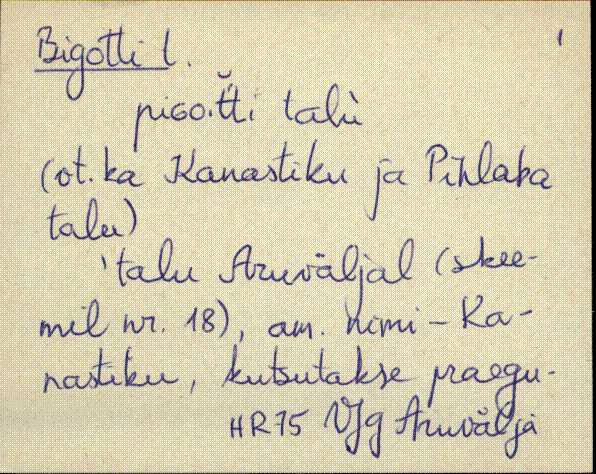 Bigotti t. 1
piGo.t̆t́i talù
(vt. ka Kanastiku ja Pihlaka
talu)
'talu Aruväljal (skee-
mil nr. 18), am. nimi – Ka-
nastiku, kutsutakse praegu-
HR75 VJg Aruvälja